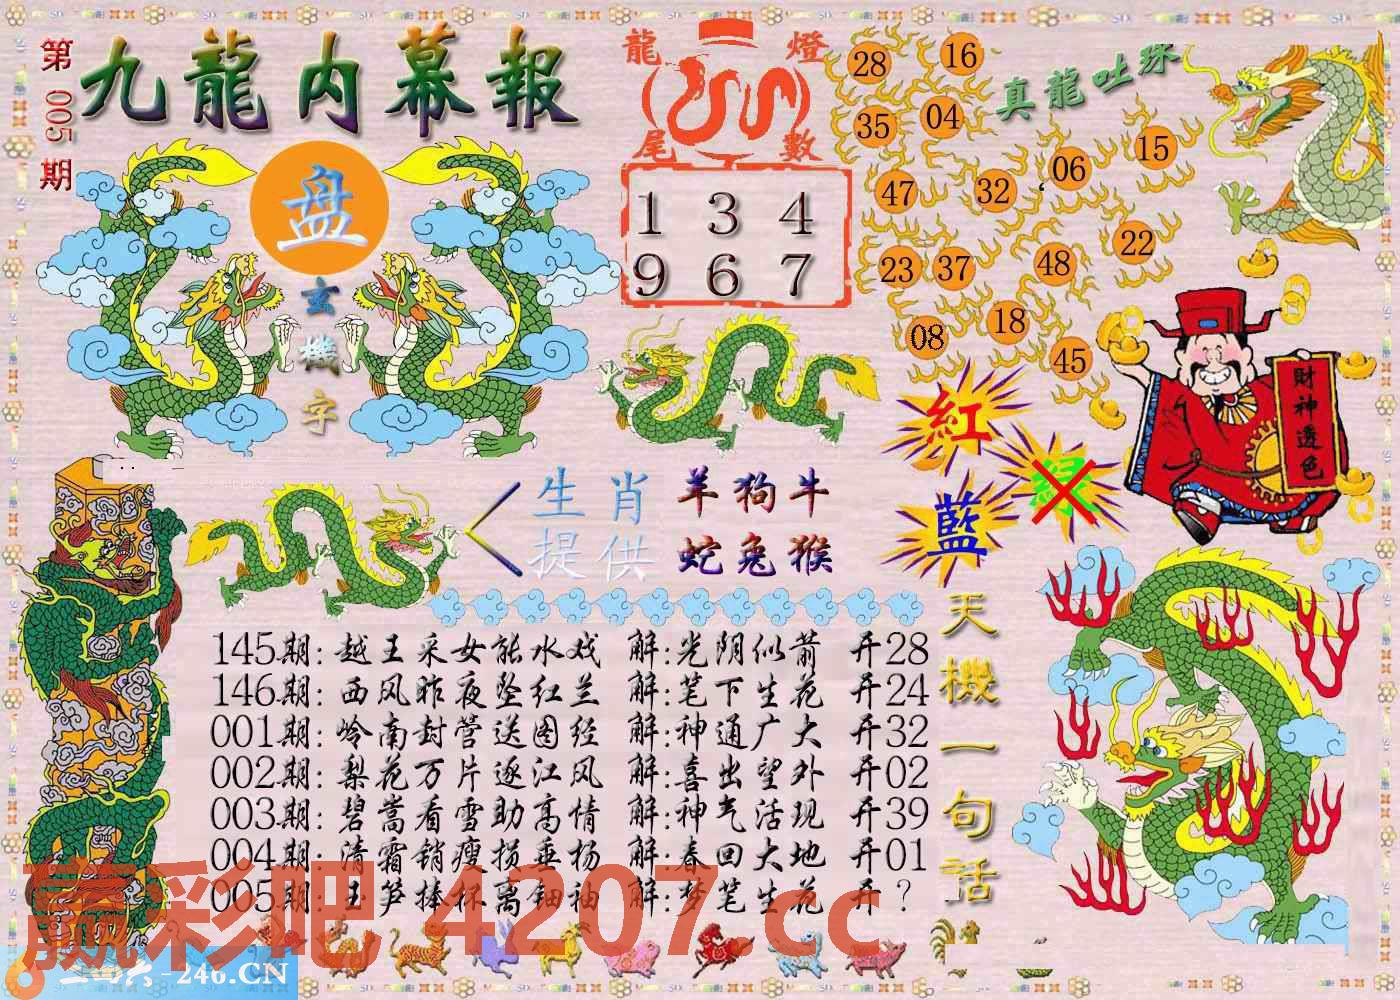 第005期
九龍内幕報
龍燈
尾數
1 3 4
9 6 7
真龍吐珠
28 16
35 04
47 32 06 15
23 37 48 22
08 18 45
盘
玄機字
紅
綠
藍
財神透色
生肖 羊狗牛
提供 蛇兔猴
145期: 越王采女能水戏 解:光阴似箭 开28
146期: 西风昨夜坠红兰 解:笔下生花 开24
001期: 岭南封管送图经 解:神通广大 开32
002期: 梨花万片逐江风 解:喜出望外 开02
003期: 碧嵩看雪助高情 解:神气活现 开39
004期: 清霜销瘦损垂杨 解:春回大地 开01
005期: 玉笋捧杯离钿袖 解:梦笔生花 开？
天機一句話
赢彩吧 4207.cc
二四六 -246.CN